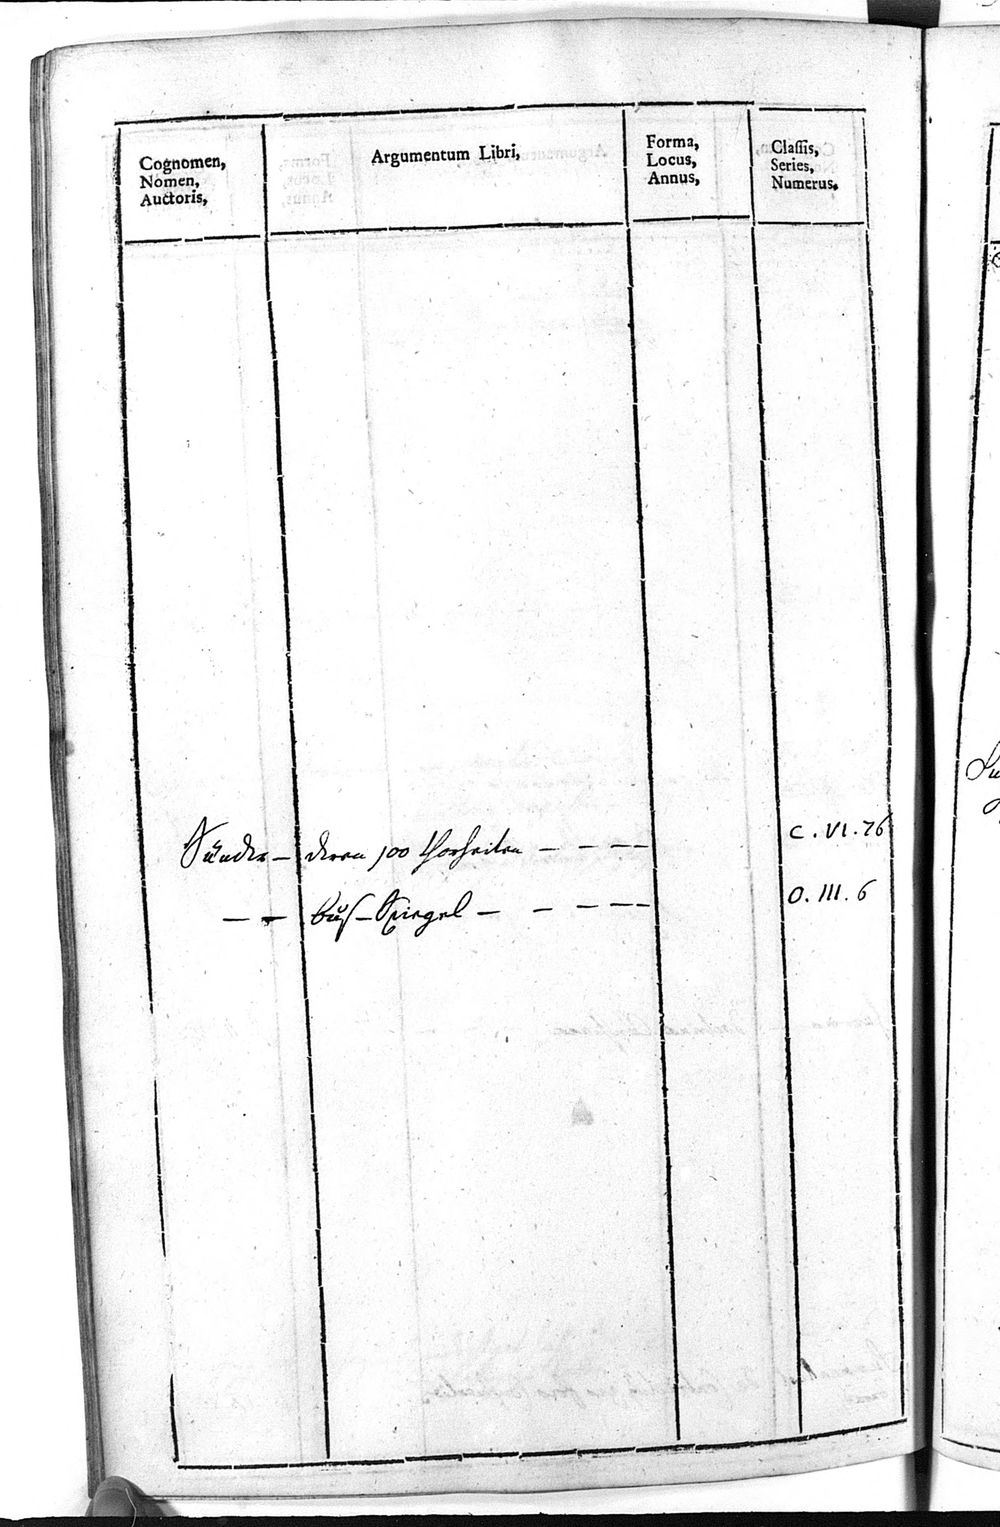 Cognomen,
Nomen,
Auctoris,
Argumentum Libri,
Forma,
Locus,
Annus,
Classis,
Series,
Numerus.
Sünder – deren 100 Thorheiten – – – – C. VI. 76
– – Buß-Spiegel – – – – – O. III. 6